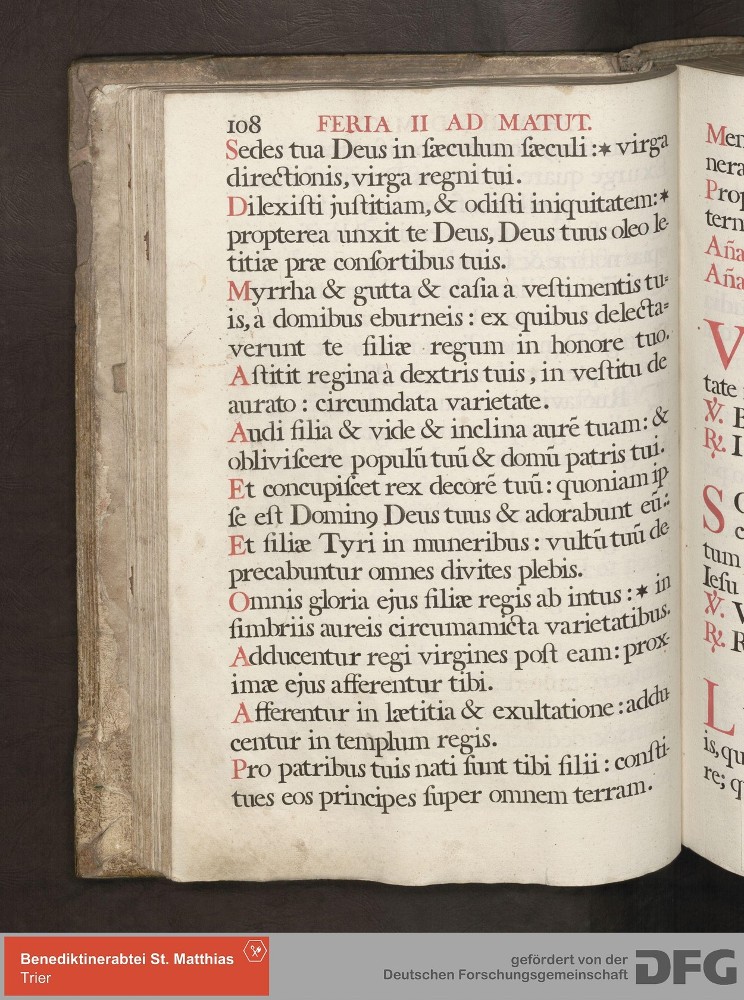 108 FERIA II AD MATUT.
Sedes tua Deus in ſæculum ſæculi :✶ virga
directionis, virga regni tui.
Dilexiſti juſtitiam, & odiſti iniquitatem:✶
propterea unxit te Deus, Deus tuus oleo le-
titiæ præ conſortibus tuis.
Myrrha & gutta & caſia à veſtimentis tu-
is, à domibus eburneis : ex quibus delecta=
verunt te filiæ regum in honore tuo.
Aſtitit regina à dextris tuis, in veſtitu de
aurato : circumdata varietate.
Audi filia & vide & inclina aurē tuam : &
obliviſcere populū tuū & domū patris tui.
Et concupiſcet rex decorē tuū : quoniam ip
ſe eſt Dominꝰ Deus tuus & adorabunt eū :
Et filiæ Tyri in muneribus : vultū tuū de
precabuntur omnes divites plebis.
Omnis gloria ejus filiæ regis ab intus :✶ in
fimbriis aureis circumamicta varietatibus.
Adducentur regi virgines poſt eam : prox-
imæ ejus afferentur tibi.
Afferentur in lætitia & exultatione : addu-
centur in templum regis.
Pro patribus tuis nati ſunt tibi filii : conſti-
tues eos principes ſuper omnem terram.
Aña
Aña
V
tate
℣.
℟. I
S
tum
Ieſu
℣. V
℟. R
L
is, qu
re; q
Benediktinerabtei St. Matthias
Trier
gefördert von der
Deutschen Forschungsgemeinschaft
DFG